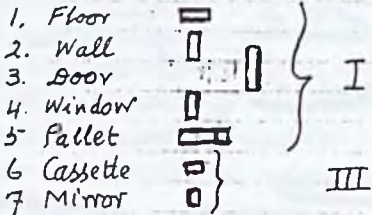 1. Floor
2. Wall
3. Door
I
4. Window
5- Pallet
6 Cassette
III
7 Mirror